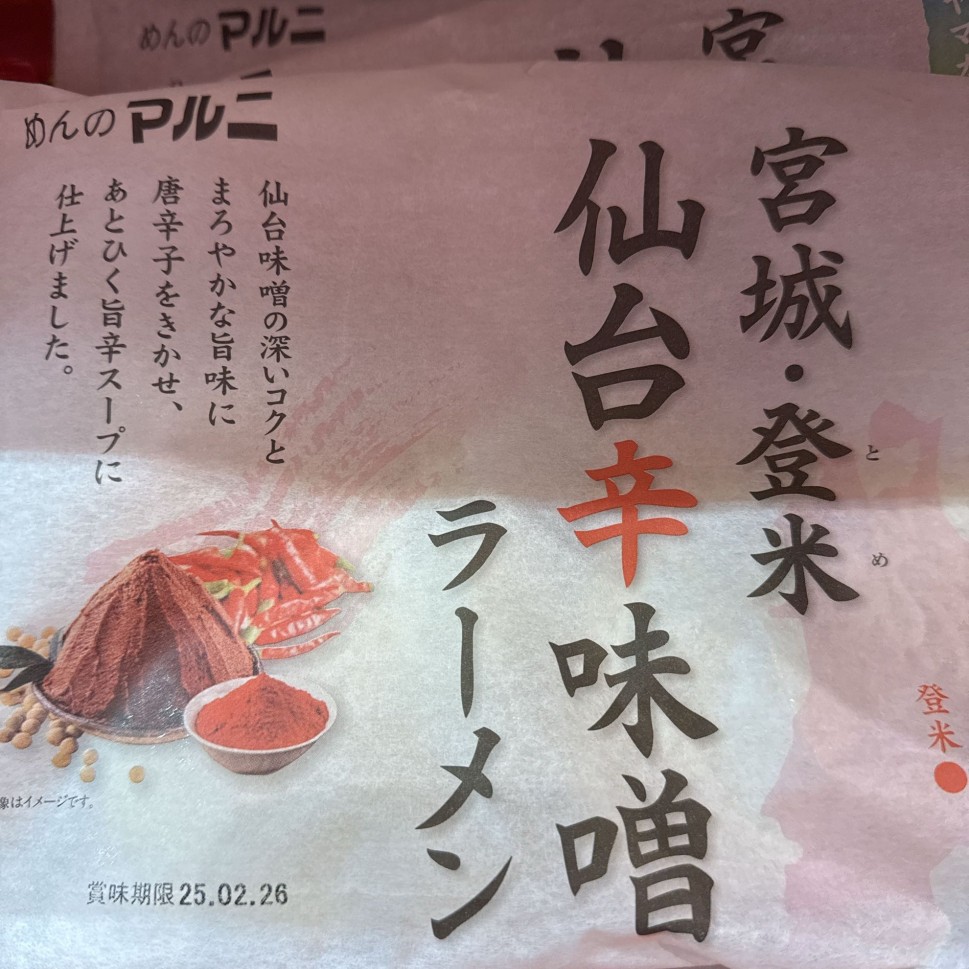 めんのマルニ
宮
めんのマルニ
宮城・登米
とめ
仙台辛味噌
ラーメン
仙台味噌の深いコクと
まろやかな旨味に
唐辛子をきかせ、
あとひく旨辛スープに
仕上げました。
登米
象はイメージです。
賞味期限 25.02.26